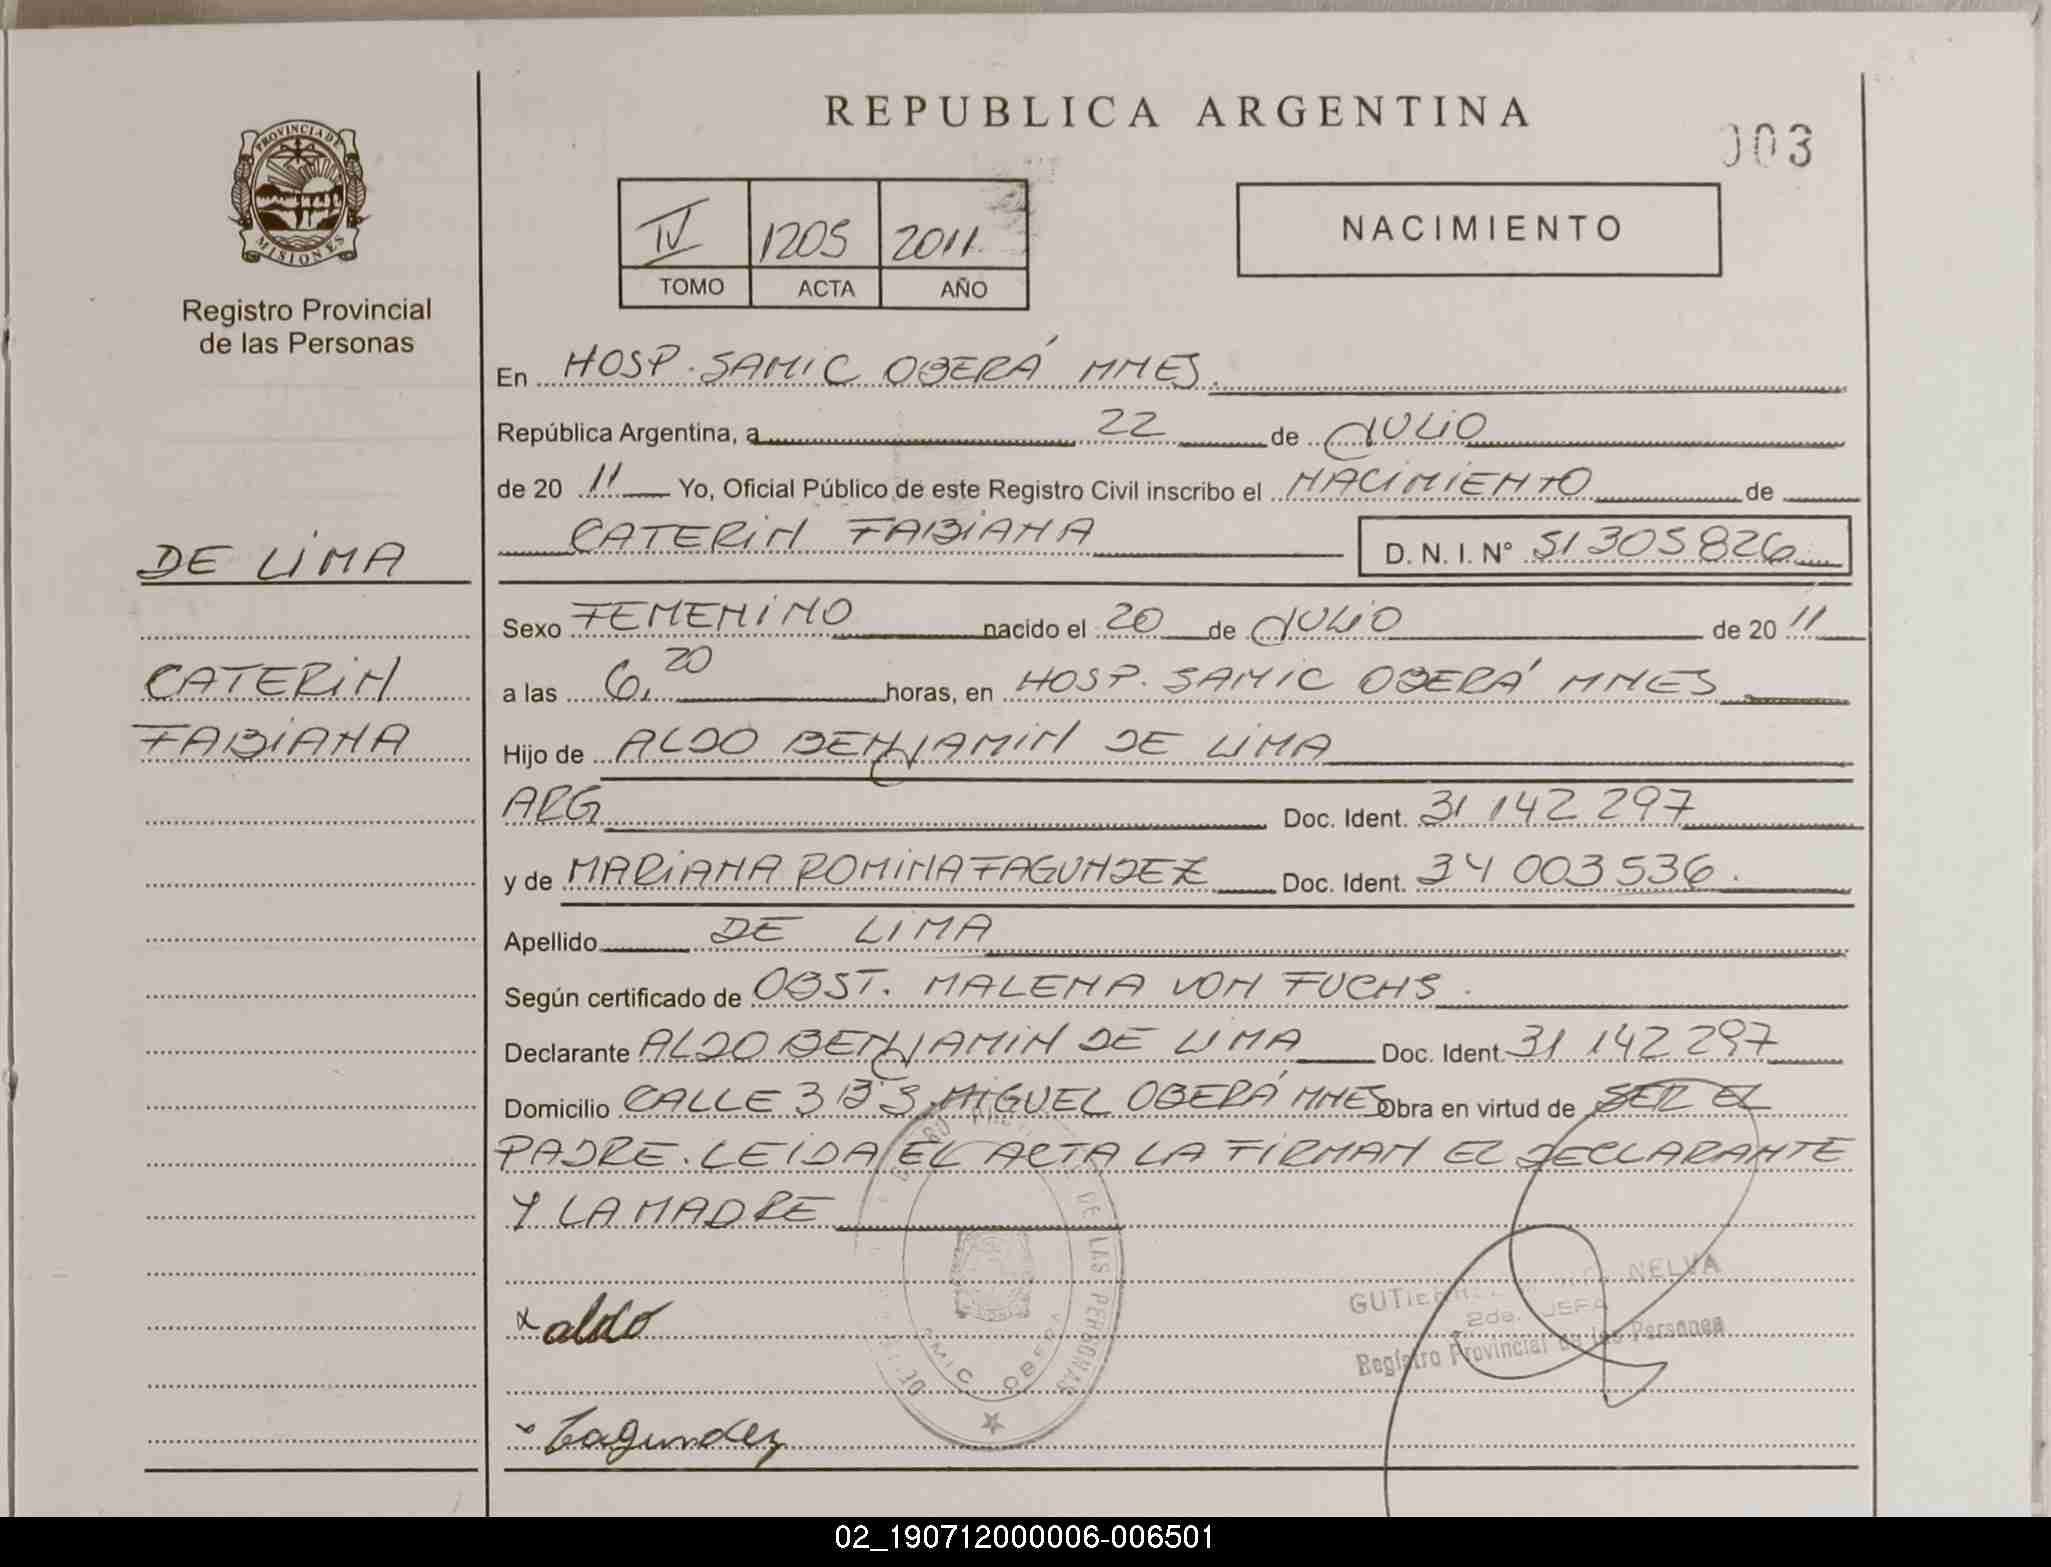 REPUBLICA ARGENTINA
003
PROVINCIA DE
MISIONES
Registro Provincial
de las Personas
IV 1205 2011
TOMO ACTA AÑO
NACIMIENTO
En HOSP. SAMIC OBERÁ MNES.
República Argentina, a 22 de JULIO
de 20 11 Yo, Oficial Público de este Registro Civil inscribo el NACIMIENTO de
CATERIN FABIANA D. N. I. N° 51305826
DE LIMA
CATERIN
FABIANA
Sexo FEMENINO nacido el 20 de JULIO de 20 11
a las 6,20 horas, en HOSP. SAMIC OBERÁ MNES
Hijo de ALDO BENJAMIN DE LIMA
ARG Doc. Ident. 31 142 297
y de MARIANA ROMINA FAGUNDEZ Doc. Ident. 34 003 536.
Apellido DE LIMA
Según certificado de OBST. MALENA VON FUCHS.
Declarante ALDO BENJAMIN DE LIMA Doc. Ident. 31 142 297
Domicilio CALLE 3 Bº S. MIGUEL OBERÁ MNES Obra en virtud de SER EL
PADRE. LEIDA EL ACTA LA FIRMAN EL DECLARANTE
Y LA MADRE
x aldo
Fagundez
DE LAS PERSONAS
SAMIC OBERA
NELVA
2da. JEFA
Registro Provincial de las Personas
02_190712000006-006501